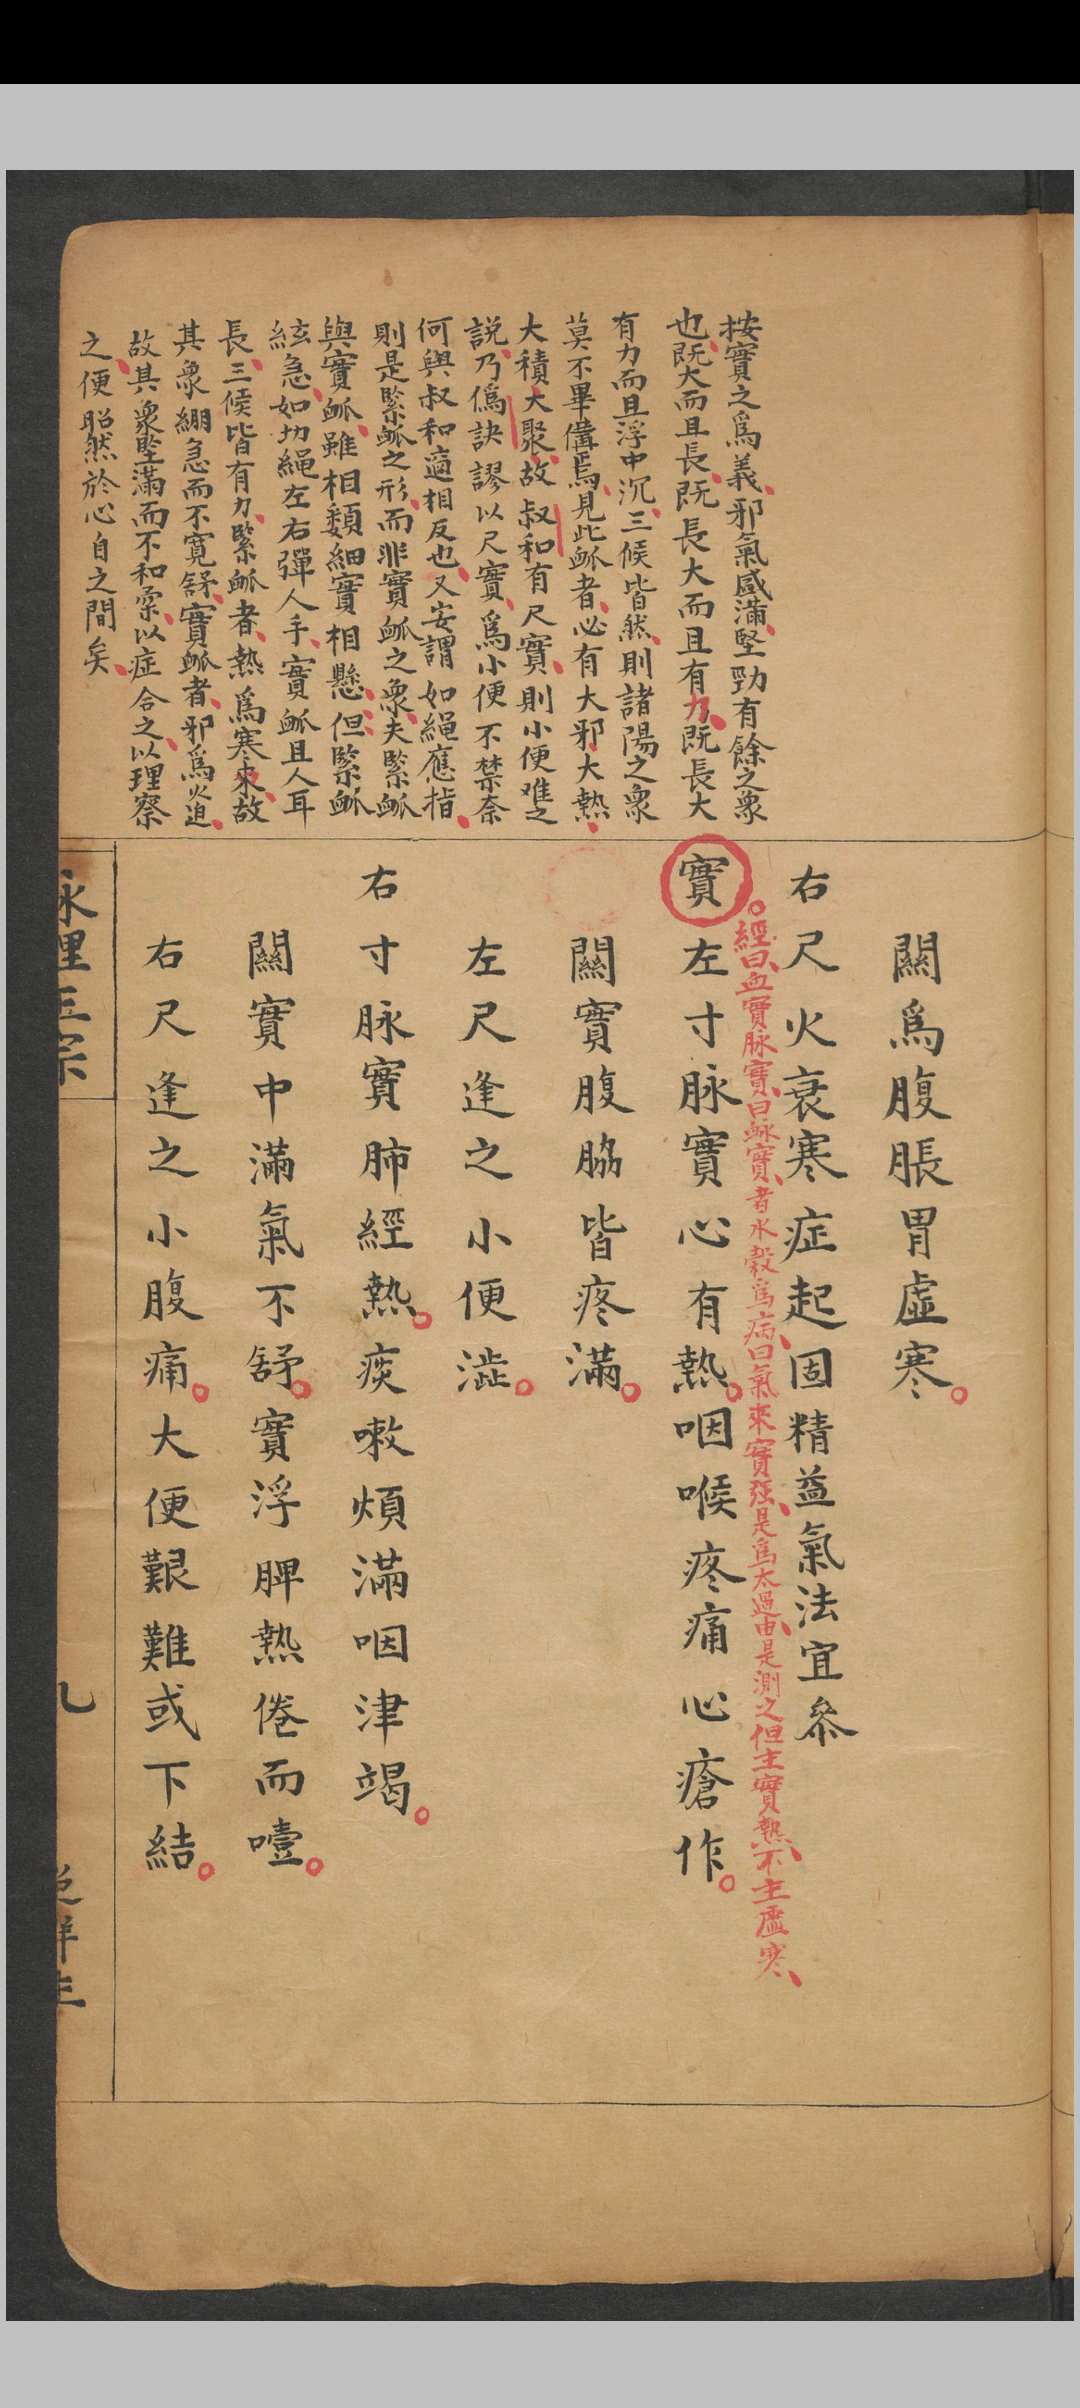 按實之爲義邪氣盛滿堅勁有餘之象
也既大而且長既長大而且有力既長大
有力而且浮中沉三候皆然則諸陽之象
莫不畢備焉見此脈者必有大邪大熱
大積大聚故叔和有尺實則小便难之
説乃僞訣謬以尺實爲小便不禁奈
何與叔和適相反也又妄謂如繩應指
則是緊脈之形而非實脈之象夫緊脈
與實脈雖相類細實相懸但緊脈
絃急如切繩左右彈人手實脈且人耳
長三候皆有力緊脈者熱爲寒束故
其象綳急而不寬舒實脈者邪爲火迫
故其象堅滿而不和柔以症合之以理察
之便昭然於心目之間矣
關爲腹脹胃虛寒
右尺火衰寒症起固精益氣法宜參
經曰血實脉實曰脈實者水穀爲病曰氣來實强是爲太過由是測之但主實熱不主虛寒
實左寸脉實心有熱咽喉疼痛心瘡作
關實腹脇皆疼滿
左尺逢之小便澁
右寸脉實肺經熱痰嗽煩滿咽津竭
關實中滿氣不舒實浮脾熱倦而噎
右尺逢之小腹痛大便艱難或下結
脉理正宗
九